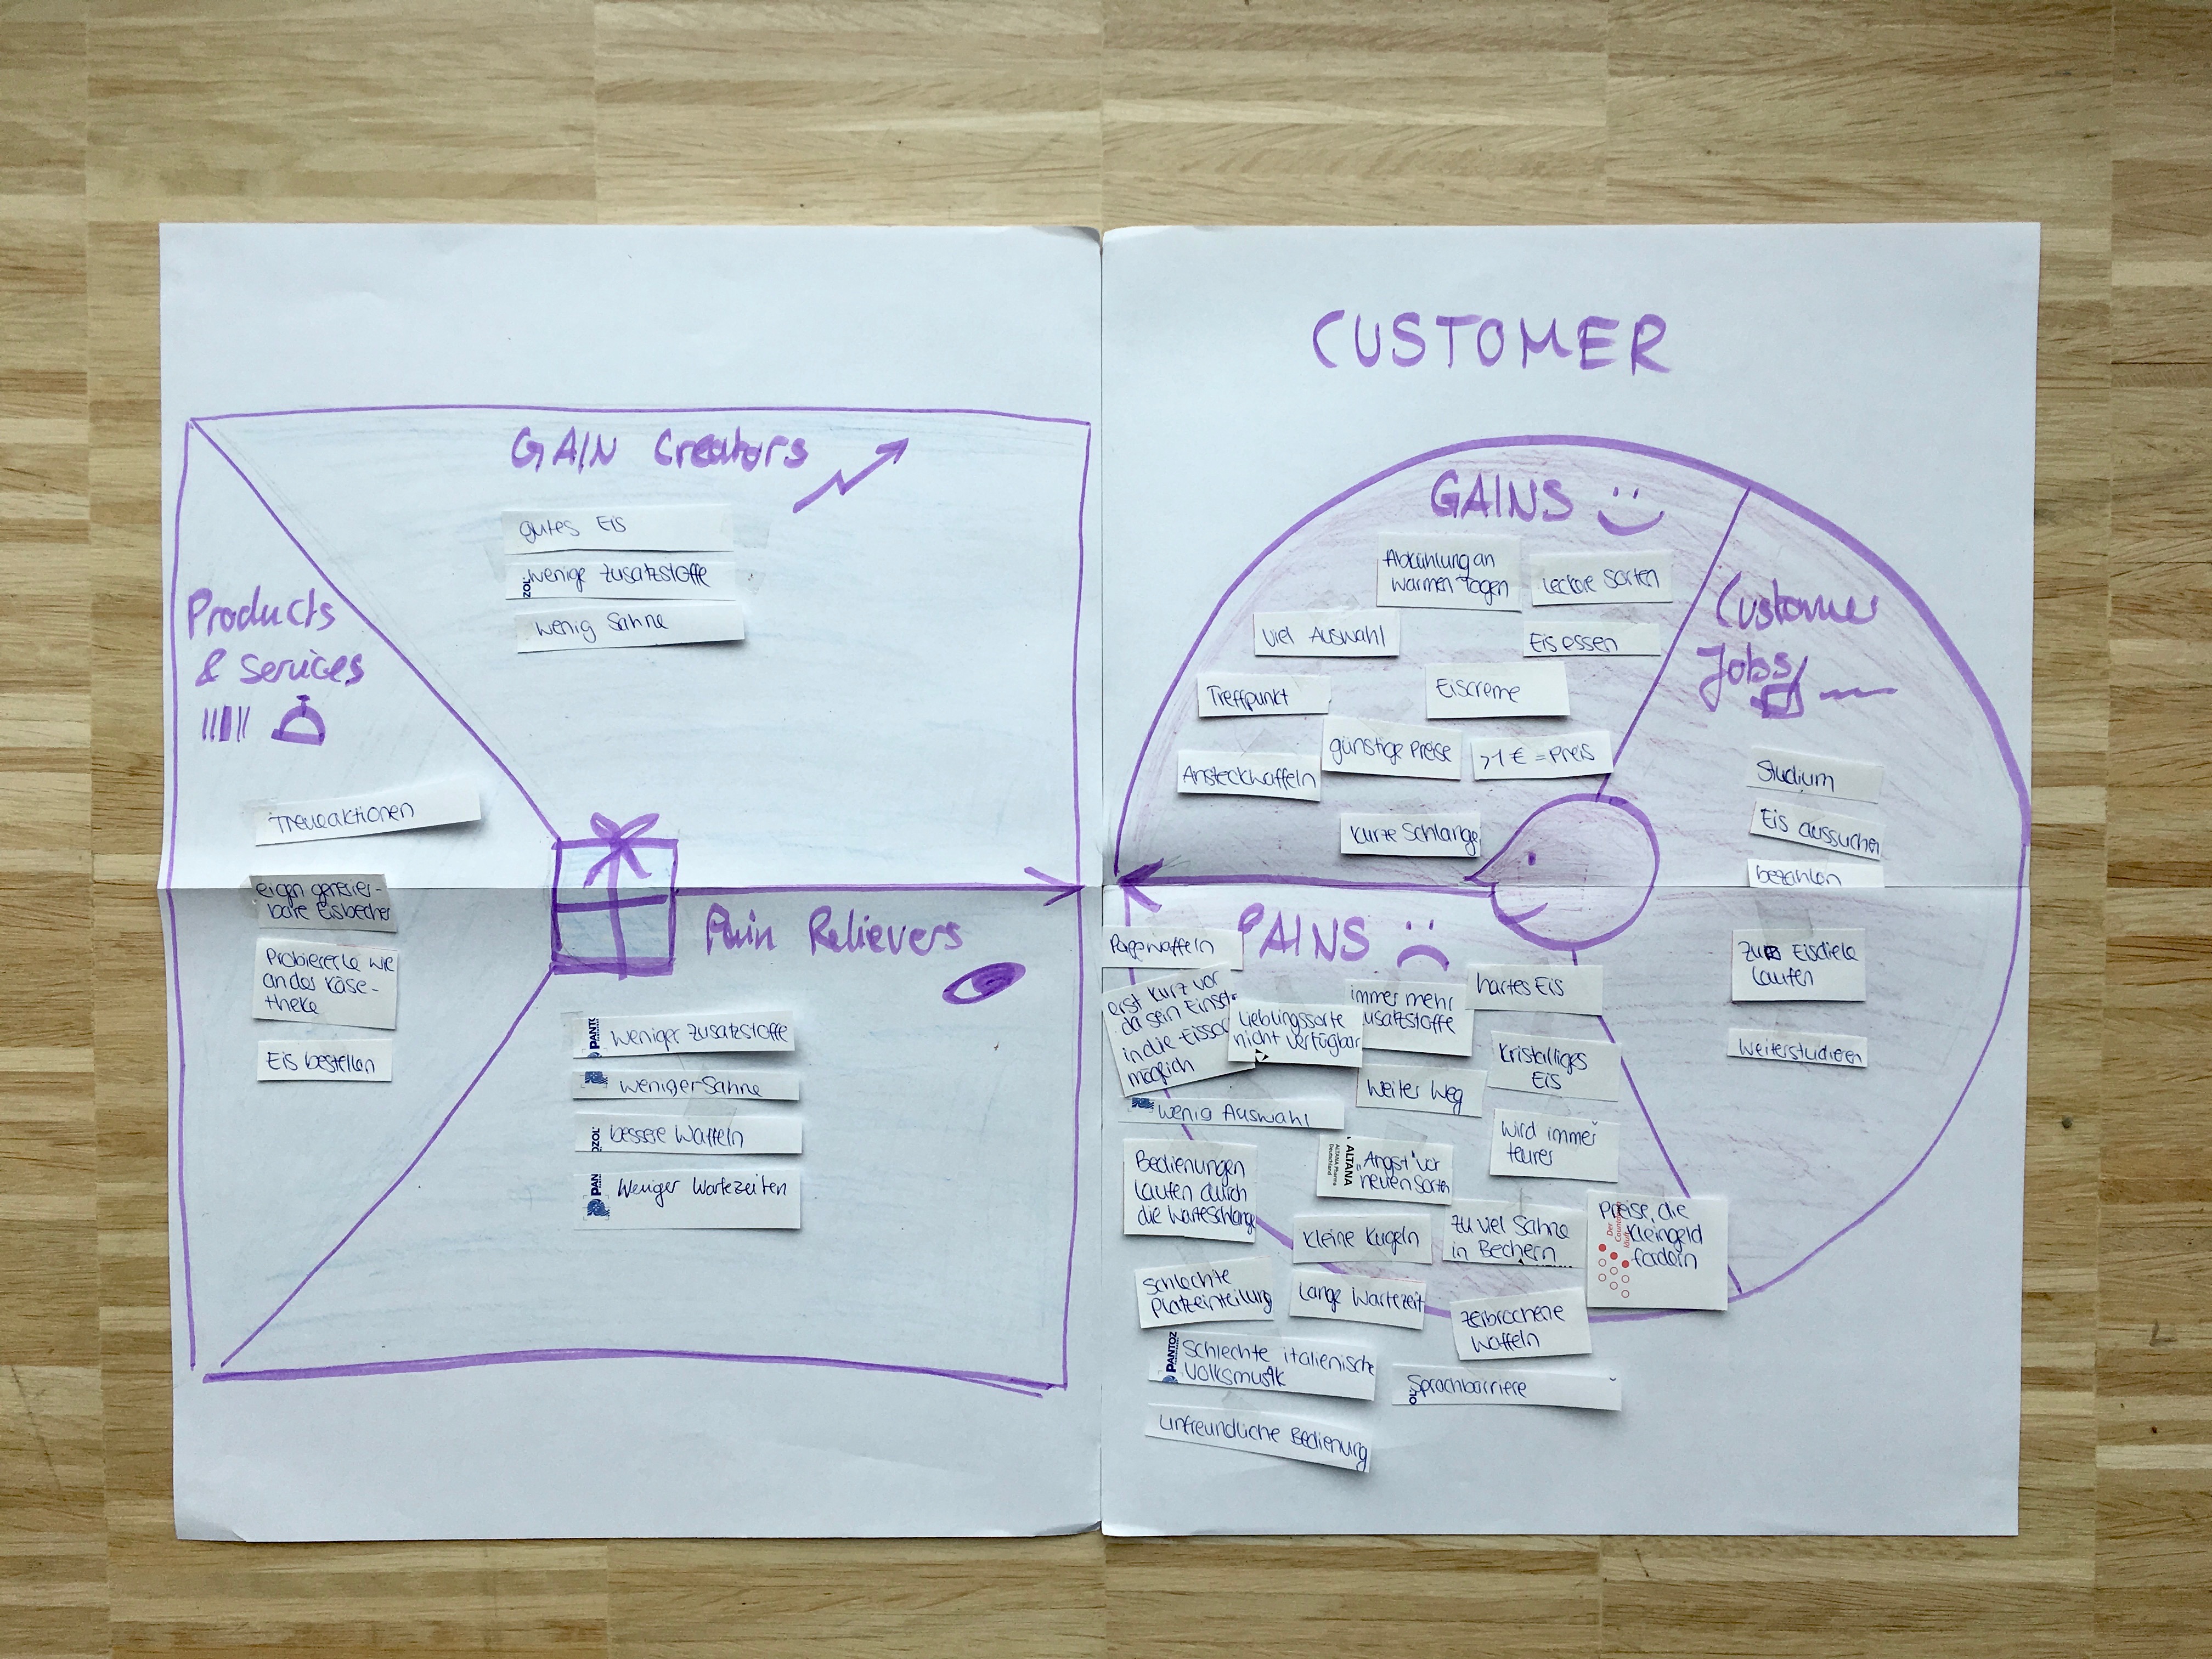 CUSTOMER
GAIN Creators
gutes Eis
wenige Zusatzstoffe
wenig Sahne
Products
& Services
Treueaktionen
eigen generier-
bare Eisbecher
Probiererle wie
an der Käse-
theke
Eis bestellen
Pain Relievers
weniger Zusatzstoffe
weniger Sahne
bessere Waffeln
Weniger Wartezeiten
GAINS
Abkühlung an
warmen Tagen
leckere Sorten
viel Auswahl
Eis essen
Treffpunkt
Eiscreme
günstige Preise
>1 € = Preis
Ansteckwaffeln
kurze Schlange
Customer
Jobs
Studium
Eis aussuchen
bezahlen
Zur Eisdiele
laufen
Weiterstudieren
PAINS
erst kurz vor
da sein Einsicht
in die Eissor
möglich
Lieblingssorte
nicht verfügbar
immer mehr
Zusatzstoffe
hartes Eis
Kristalliges
Eis
Weiter Weg
wenig Auswahl
wird immer
teurer
Bedienungen
laufen durch
die Warteschlange
ALTANA
ALTANA Pharma
Deutschland
"Angst" vor
neuen Sorten
kleine Kugeln
zu viel Sahne
in Bechern
Preise, die
Kleingeld
fordern
Schlechte
Platzeinteilung
Lange Wartezeit
zerbrochene
Waffeln
PANTOZ
Schlechte italienische
Volksmusik
Sprachbarriere
Unfreundliche Bedienung